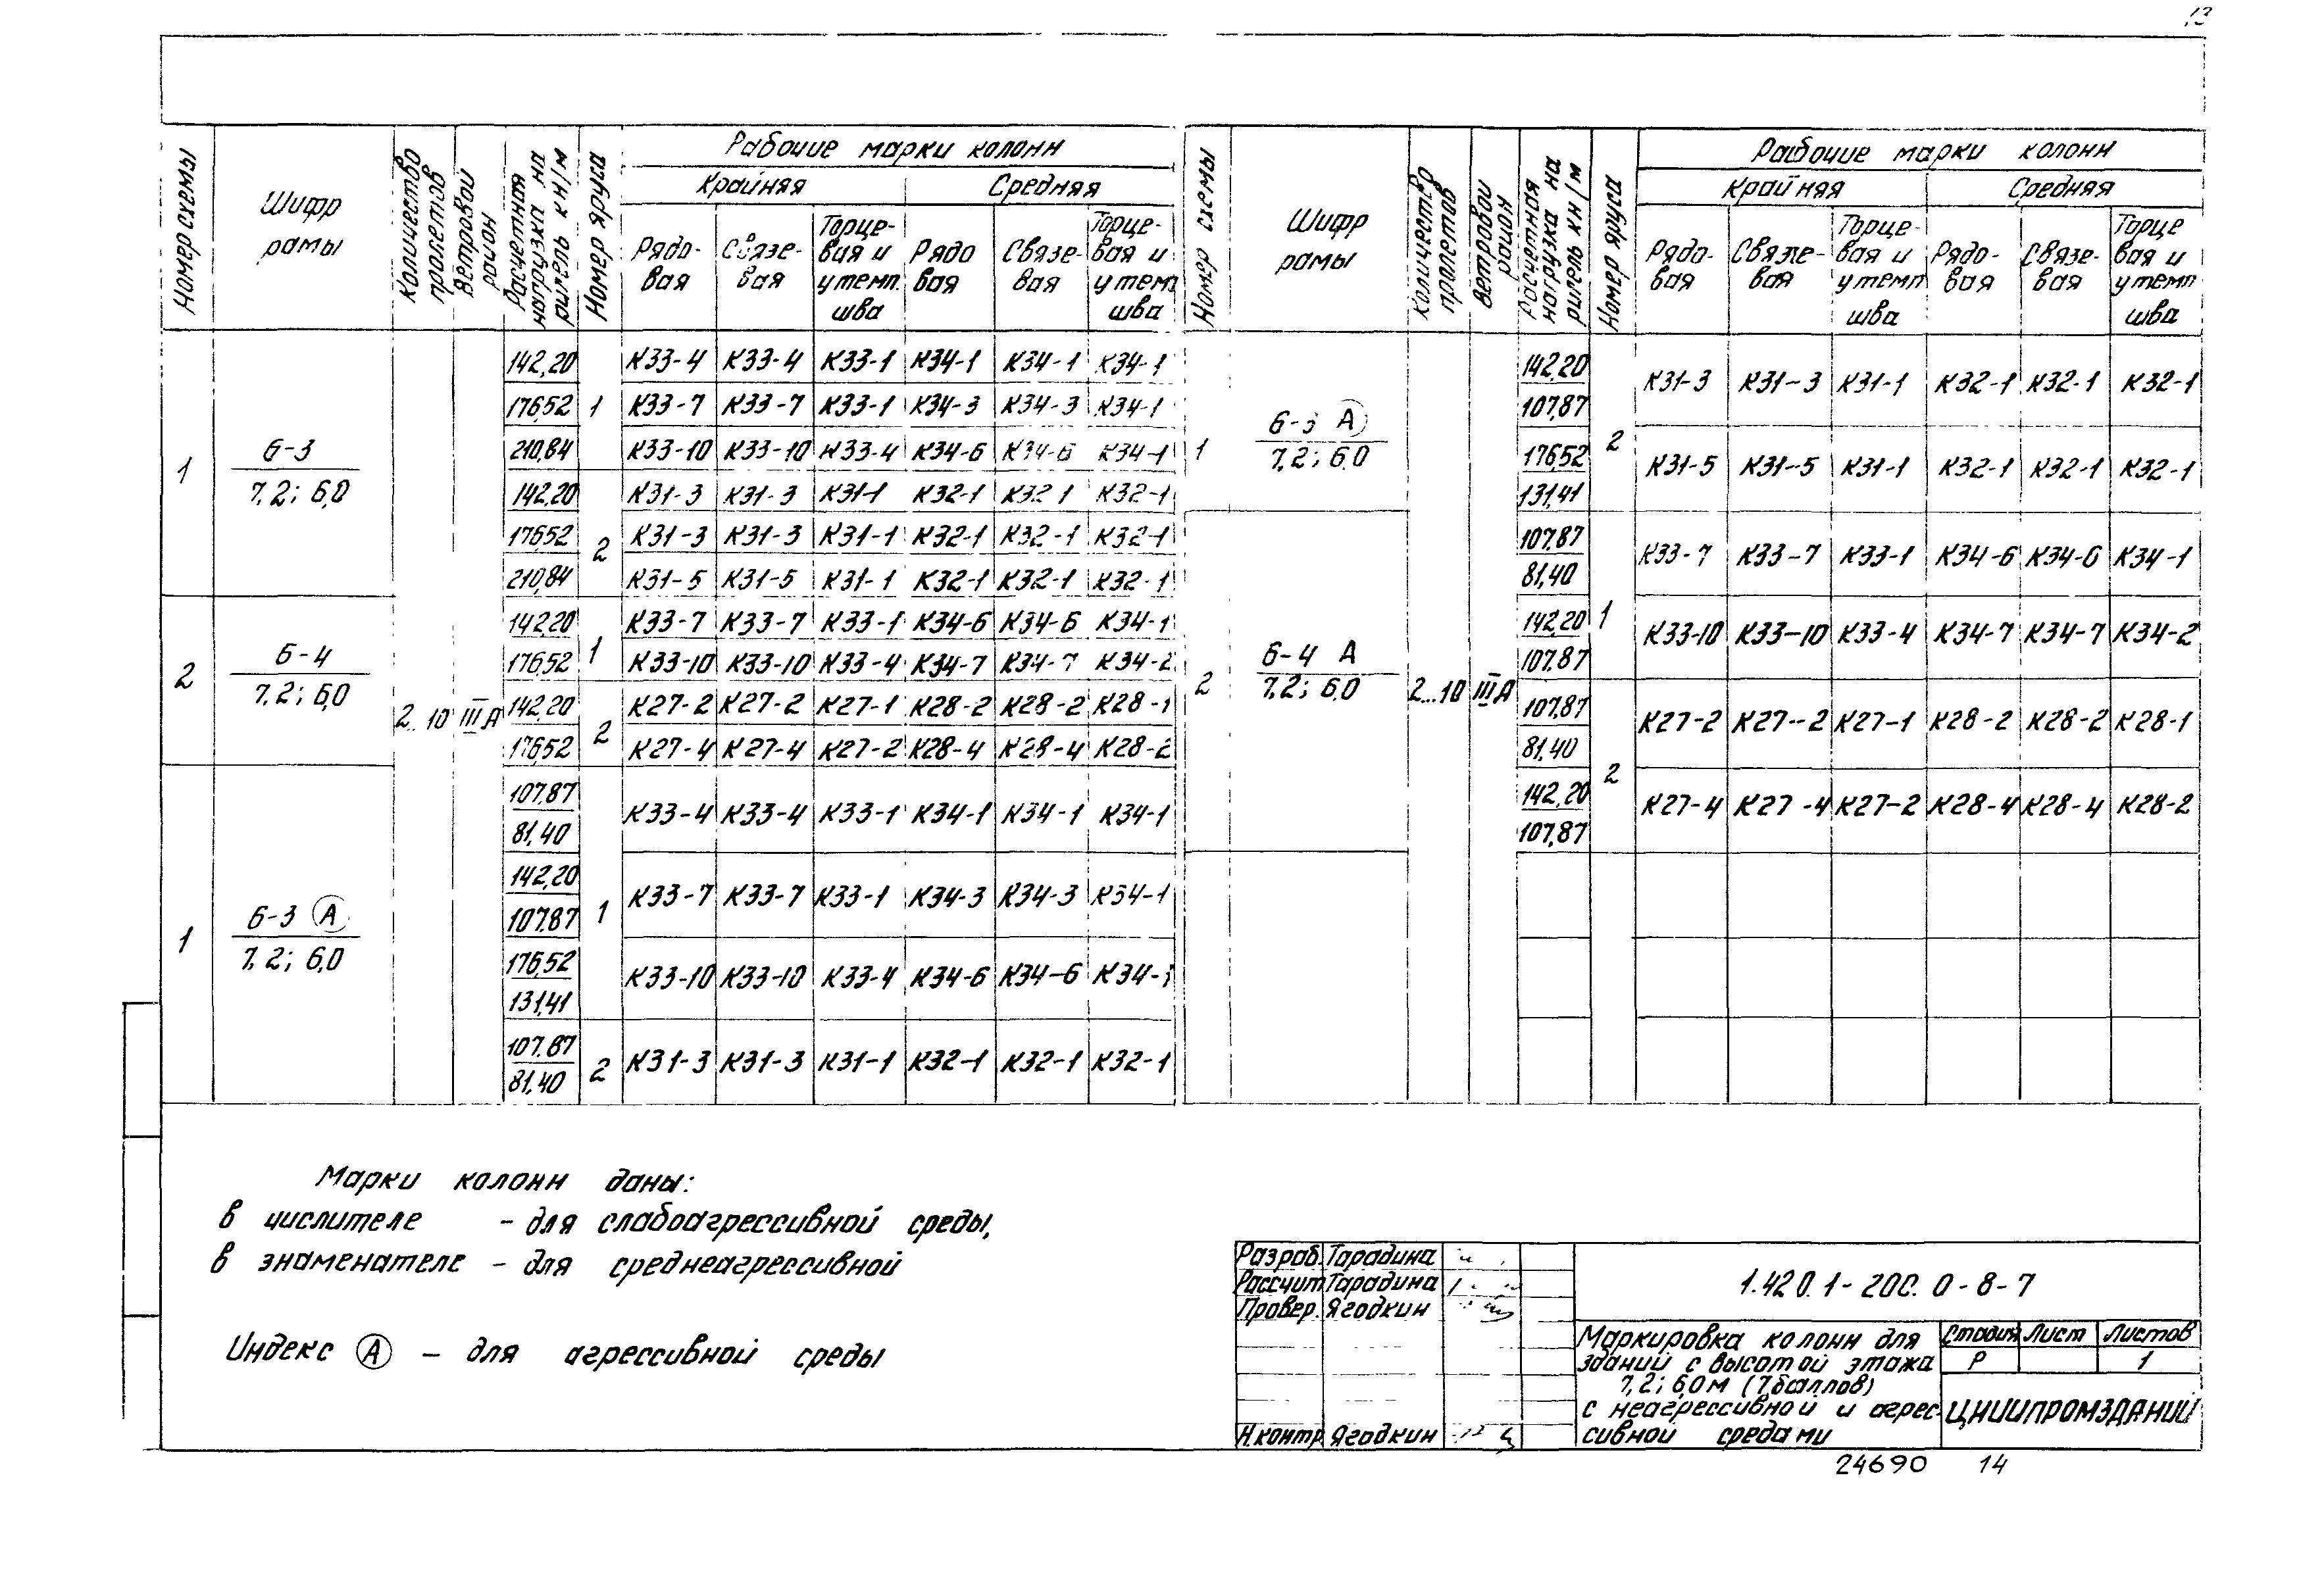 13
Номер схемы | Шифр рамы | Количество пролетов | Ветровой район | Расчетная нагрузка на ригель кн/м | Номер яруса | Рабочие марки колонн
Крайняя | Средняя
Рядовая | Связевая | Торцевая и у темп шва | Рядовая | Связевая | Торцевая и у темп шва
1 | 6-3 / 7,2; 6,0 | 2..10 | IIIA | 142,20 | 1 | К33-4 | К33-4 | К33-1 | К34-1 | К34-1 | К34-1
176,52 | К33-7 | К33-7 | К33-1 | К34-3 | К34-3 | К34-1
210,84 | К33-10 | К33-10 | К33-4 | К34-6 | К34-6 | К34-1
142,20 | 2 | К31-3 | К31-3 | К31-1 | К32-1 | К32-1 | К32-1
176,52 | К31-3 | К31-3 | К31-1 | К32-1 | К32-1 | К32-1
210,84 | К31-5 | К31-5 | К31-1 | К32-1 | К32-1 | К32-1
2 | 6-4 / 7,2; 6,0 | 142,20 | 1 | К33-7 | К33-7 | К33-1 | К34-6 | К34-6 | К34-1
176,52 | К33-10 | К33-10 | К33-4 | К34-7 | К34-7 | К34-2
142,20 | 2 | К27-2 | К27-2 | К27-1 | К28-2 | К28-2 | К28-1
176,52 | К27-4 | К27-4 | К27-2 | К28-4 | К28-4 | К28-2
1 | 6-3 А / 7,2; 6,0 | 107,87 / 81,40 | 1 | К33-4 | К33-4 | К33-1 | К34-1 | К34-1 | К34-1
142,20 / 107,87 | К33-7 | К33-7 | К33-1 | К34-3 | К34-3 | К34-1
176,52 / 131,41 | К33-10 | К33-10 | К33-4 | К34-6 | К34-6 | К34-1
107,87 / 81,40 | 2 | К31-3 | К31-3 | К31-1 | К32-1 | К32-1 | К32-1
Номер схемы | Шифр рамы | Количество пролетов | Ветровой район | Расчетная нагрузка на ригель кн/м | Номер яруса | Рабочие марки колонн
Крайняя | Средняя
Рядовая | Связевая | Торцевая и у темп шва | Рядовая | Связевая | Торцевая и у темп шва
1 | 6-3 А / 7,2; 6,0 | 2...10 | IIIА | 142,20 / 107,87 | 2 | К31-3 | К31-3 | К31-1 | К32-1 | К32-1 | К32-1
176,52 / 131,41 | К31-5 | К31-5 | К31-1 | К32-1 | К32-1 | К32-1
2 | 6-4 А / 7,2; 6,0 | 107,87 / 81,40 | 1 | К33-7 | К33-7 | К33-1 | К34-6 | К34-6 | К34-1
142,20 / 107,87 | К33-10 | К33-10 | К33-4 | К34-7 | К34-7 | К34-2
107,87 / 81,40 | 2 | К27-2 | К27-2 | К27-1 | К28-2 | К28-2 | К28-1
142,20 / 107,87 | К27-4 | К27-4 | К27-2 | К28-4 | К28-4 | К28-2
Марки колонн даны:
в числителе - для слабоагрессивной среды,
в знаменателе - для среднеагрессивной
Индекс А - для агрессивной среды
Разраб. Тарадина
Рассчит Тарадина
Провер. Ягодкин
Н.контр Ягодкин
1.420.1-20с. 0-8-7
Маркировка колонн для
зданий с высотой этажа
7,2; 6,0м (7 баллов)
с неагрессивной и агрес-
сивной средами
Стадия Лист Листов
Р 1
ЦНИИПРОМЗДАНИЙ
24690 14